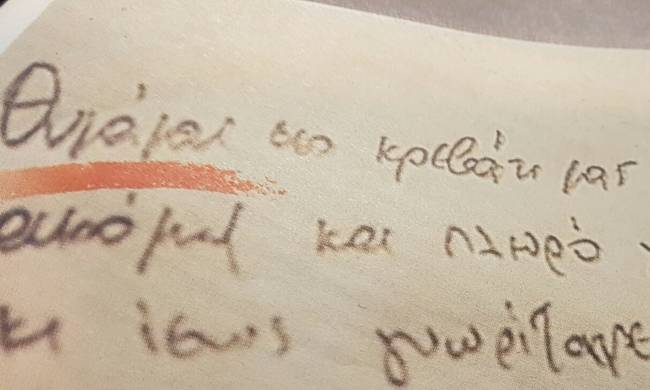 Θυμάμαι στο κρεβάτι μας
και πλωρό
κι ίσως γνωρίζαμε